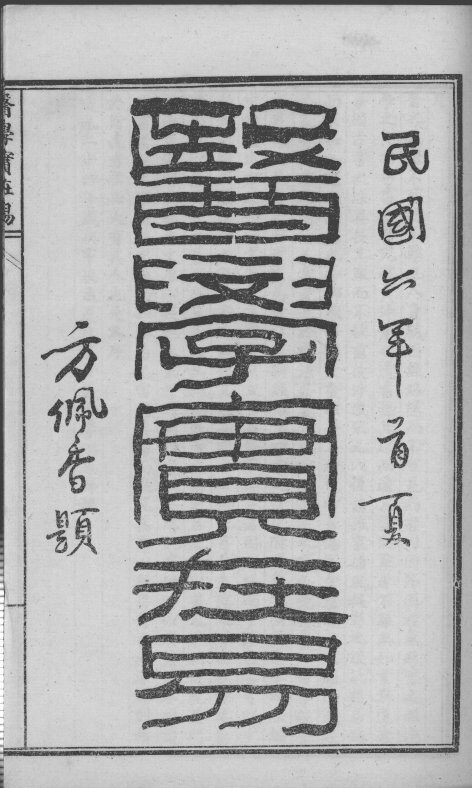 民國六年首夏
醫學實在易
方佩香題
醫學實在易